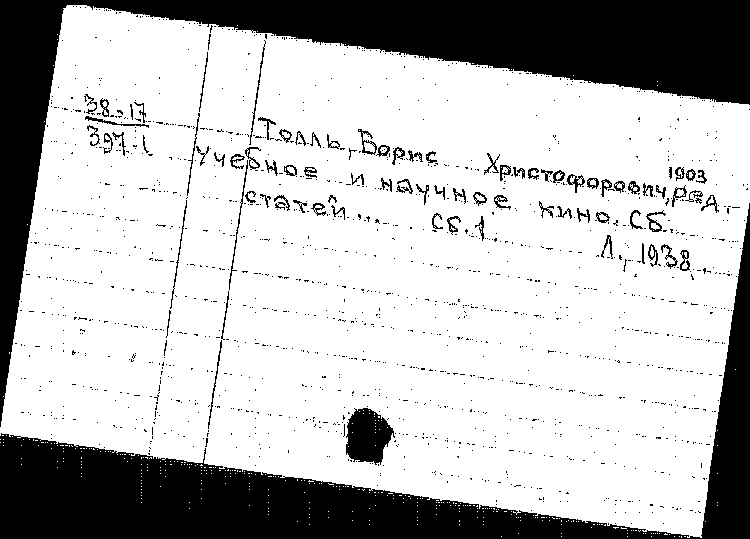 38-17
397-1
1903
Толль, Борис Христофорович, ред.
Учебное и научное кино. Сб.
статей... Сб. 1. Л., 1938.